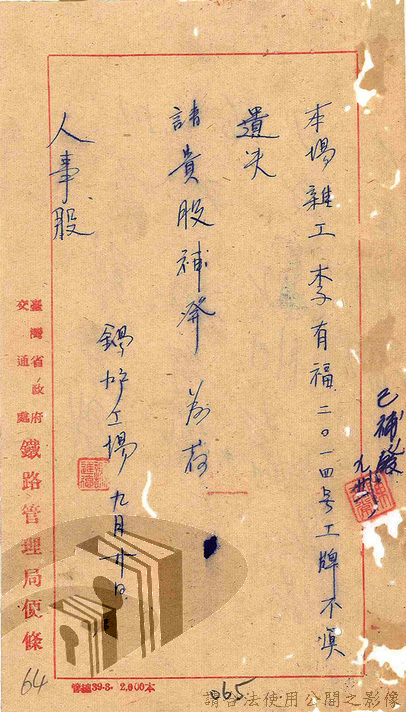 本場雜工李有福二〇一四号工牌不慎
遺失
請貴股補發為荷
人事股
鍋炉工場 九月廿日
已補發
臺灣省政府
交通處
鐵路管理局便條
管編39-8-2,000本
64
065
請合法使用公開之影像